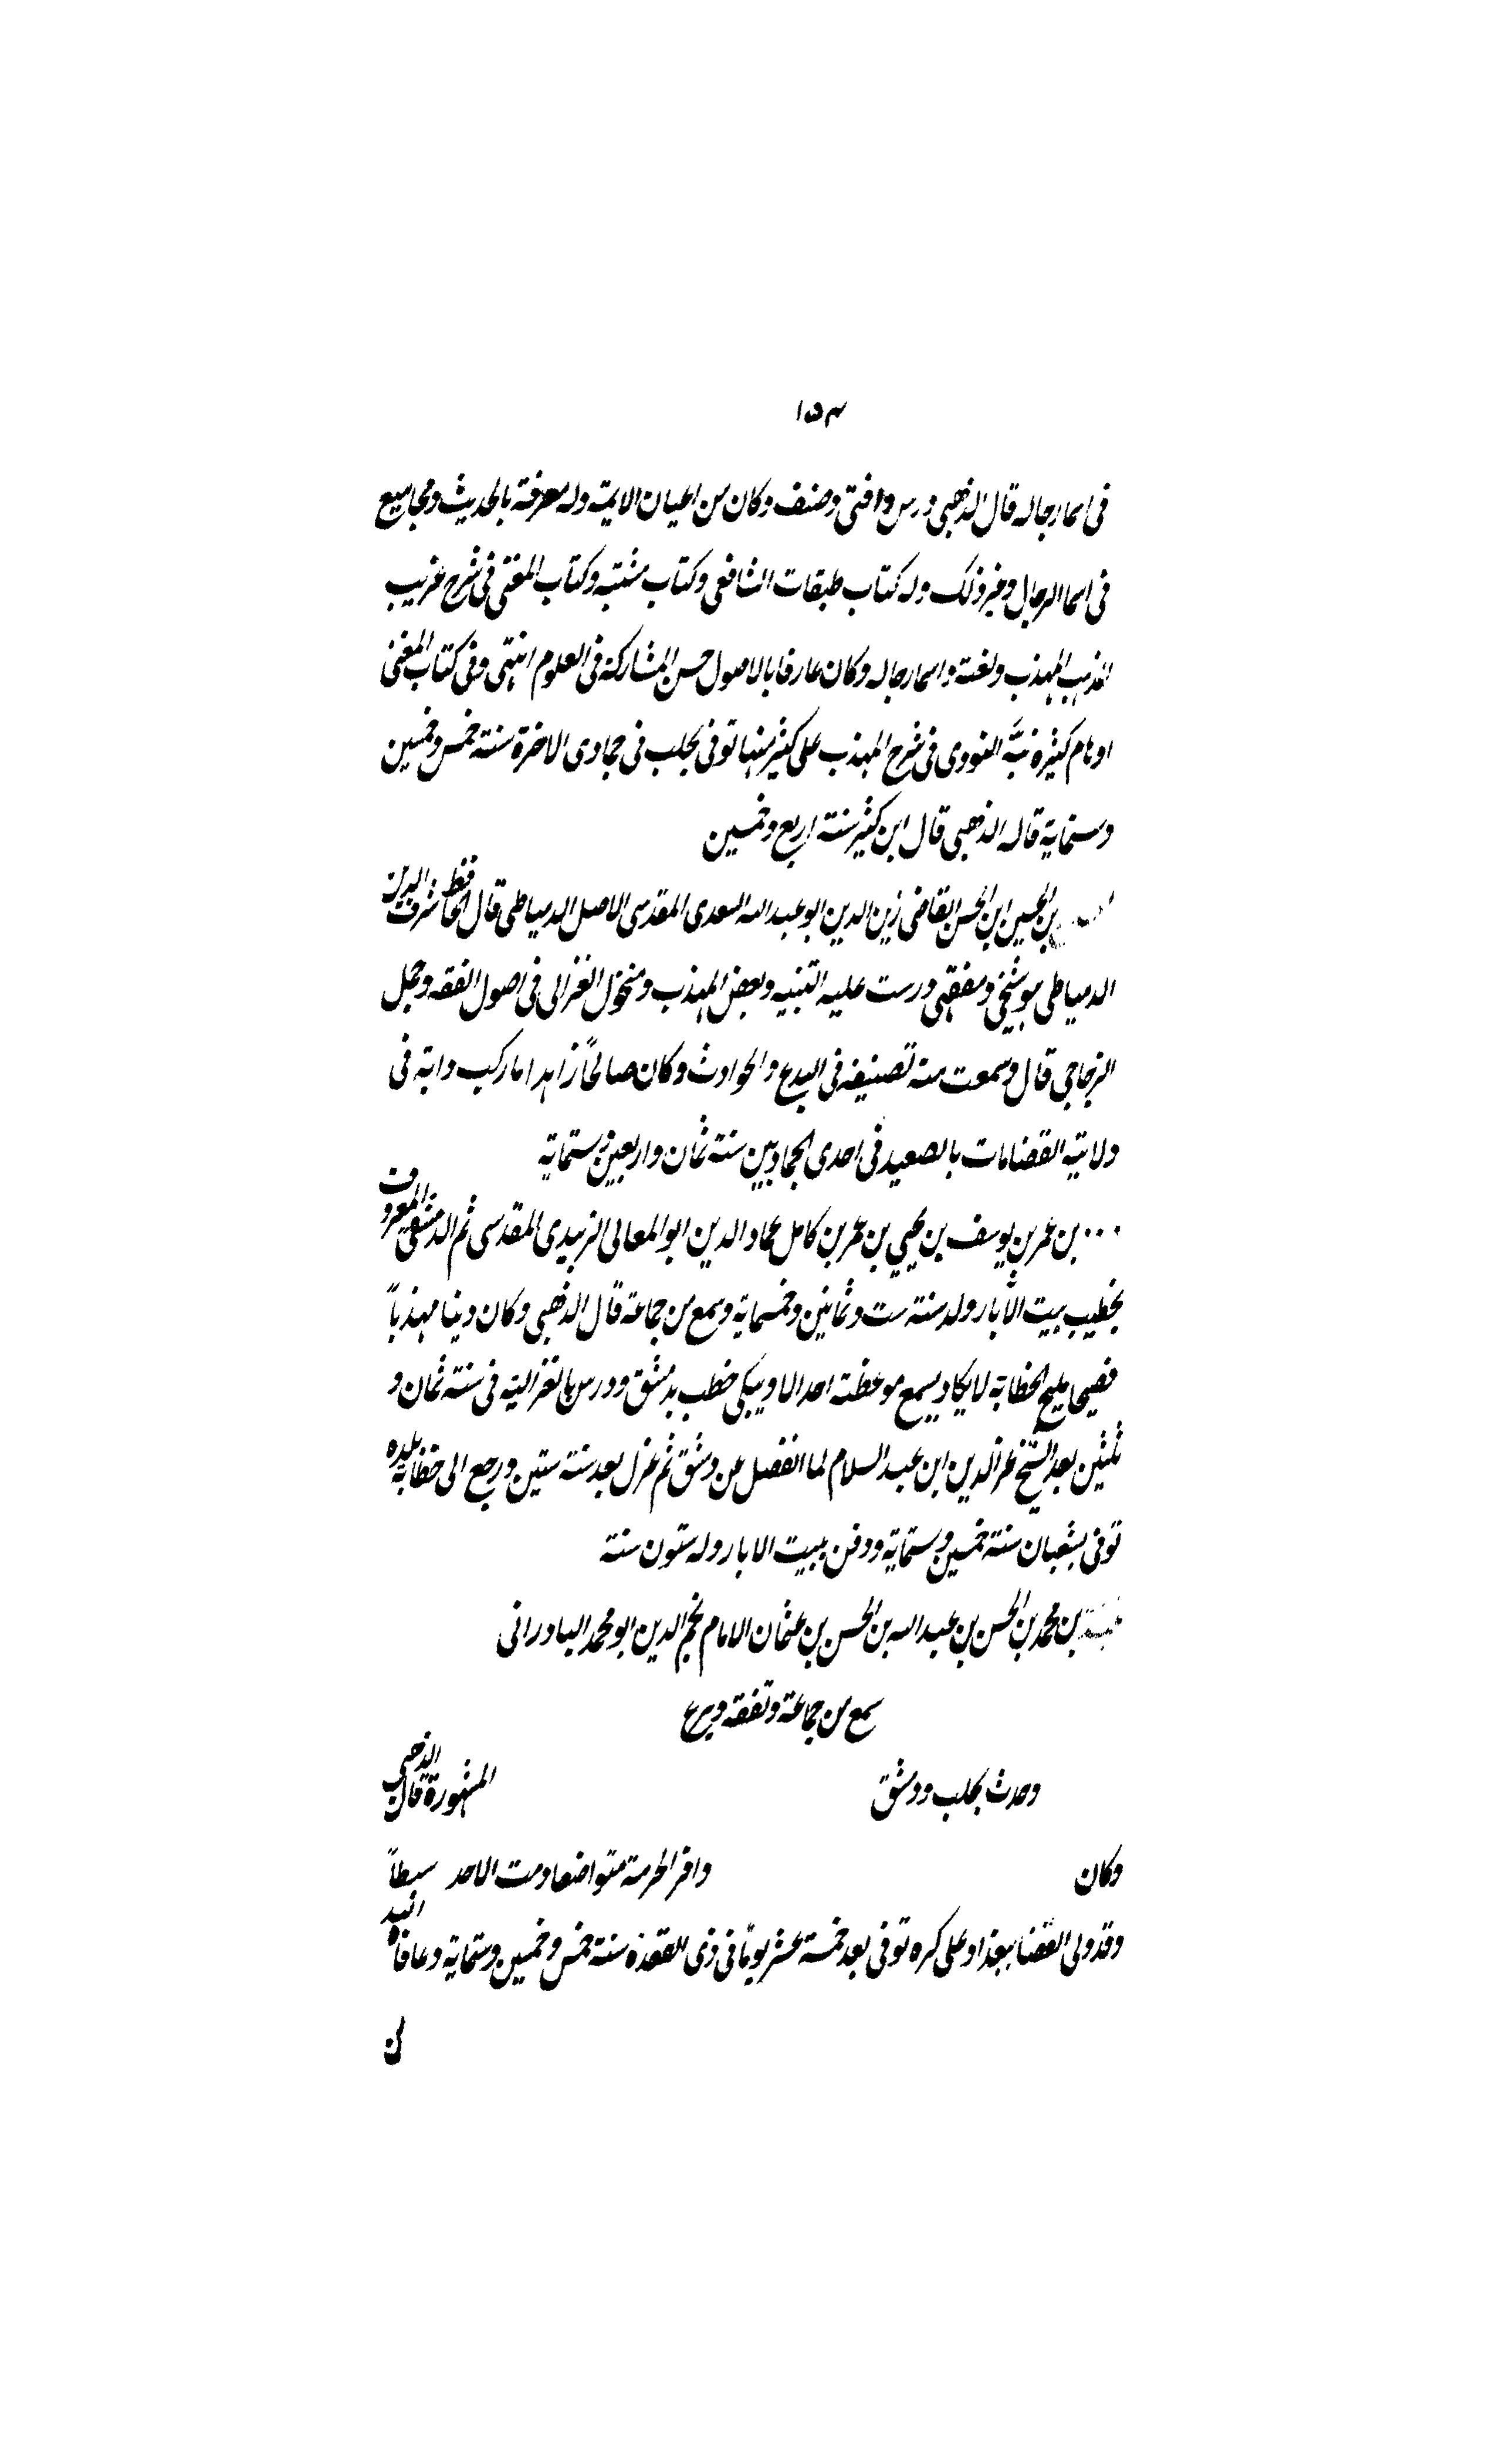 ۱۵۳
فی اسما رجاله قال الذهبی درس وافتی وصنف وکان من اعیان الایمة وله معرفة بالحدیث ومجامیع
فی اسما الرجال وغیر ذلک وله کتاب طبقات الشافعی وکتاب مشتبه وکتاب المغنی فی شرح غریب
المهذب ولغته واسما رجاله وکان عارفا بالاصول حسن المشارکة فی العلوم انتهی وفی کتاب المغنی
اوهام کثیرة نبَّه النووی فی شرح المهذب علی کثیر منها توفی بحلب فی جمادی الاخرة سنة خمس وخمسین
وستمایة قاله الذهبی قال ابن کثیر سنة اربع وخمسین
بن الحسین ابن الحسن القاضی زین الدین ابو عبد الله السعدی المقدسی الاصل الدمیاطی قال الحافظ شرف الدین
الدمیاطی هو شیخی ومفقهی درست علیه التنبیه وبعض المهذب ومنخول الغزالی فی اصول الفقه وجمل
الزجاجی قال وسمعت منه تصنیفه فی البدع والحوادث وکان صالحاً زاهدا ما رکب دابة فی
ولایته القضا مات بالصعید فی احدی الجمادیین سنة ثمان واربعین وستمایة
... بن عمر بن یوسف بن یحیی بن عمر بن کامل عماد الدین ابو المعالی الزبیدی المقدسی ثم الدمشقی المعروف
بخطیب بیت الأبار ولد سنة ست وثمانین وخمسمایة وسمع من جماعة قال الذهبی وکان دینا مهذباً
فصیحا ملیح الخطابة لا یکاد یسمع موعظته احد الا ویبکی خطب بدمشق ودرس بالغزالیة فی سنة ثمان و
ثلثین بعد الشیخ عز الدین ابن عبد السلام لما انفصل عن دمشق ثم عزل بعد سنة ستین ورجع الی خطابة بلده
توفی بشعبان سنة خمسین وستمایة ودفن ببیت الابار وله ستون سنة
بن محمد بن الحسن بن عبد الله بن الحسن بن عثمان الامام نجم الدین ابو محمد البادرانی
سمع من جماعة وتفقه وبرع
وحدث بحلب ودمشق المشهورة قال الذهبی
وکان وافر الحرمة متواضعا دمث الاحد سبطاً
وقد ولی القضا ببغداد علی کره توفی بعد خمسة عشر یومًا فی ذی القعدة سنة خمس وخمسین وستمایة وعافاه